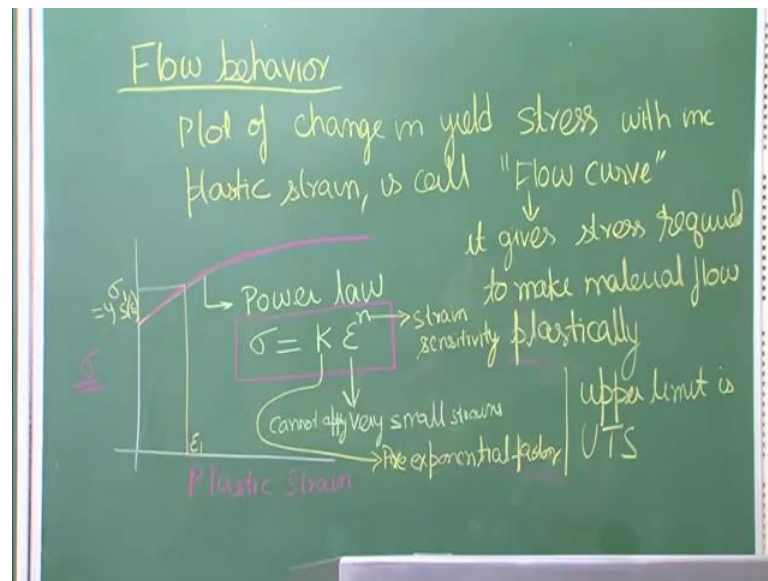 Flow behavior
Plot of change in yield stress with inc
plastic strain, is call "Flow curve"
it gives stress required
to make material flow
plastically
Power law
σ = K ε^n
strain
sensitivity
upper limit is
UTS
Cannot apply very small strains
Pre exponential factor
σ
ε₁
Plastic Strain